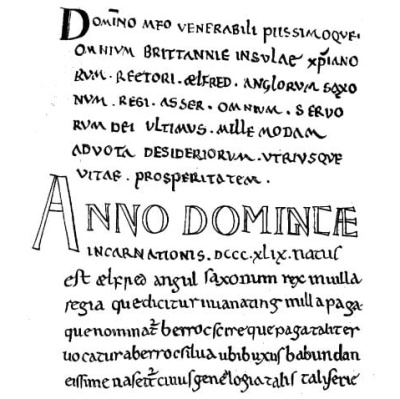 DOMINO MEO VENERABILI PIISSIMOQUE·
OMNIUM BRITTANNIE INSULAE XPIANO
RUM·RECTORI·ÆLFRED·ANGLORUM SAXO
NUM·REGI·ASSER·OMNIUM·SERVO
RUM DEI ULTIMUS·MILLE MODAM
ADVOTA DESIDERIORUM·UTRIUSQUE
VITAE·PROSPERITATEM·
ANNO DOMINICÆ
INCARNATIONIS·DCCC·XLIX·NATUS
est ælfred angul saxonum rex inuilla
regia quedicitur uuanating inilla paga
quenominat berrocscire quepagataliter
uocatura berroc silua ubi buxus habundan
tissime nascit cuius genelogia talis